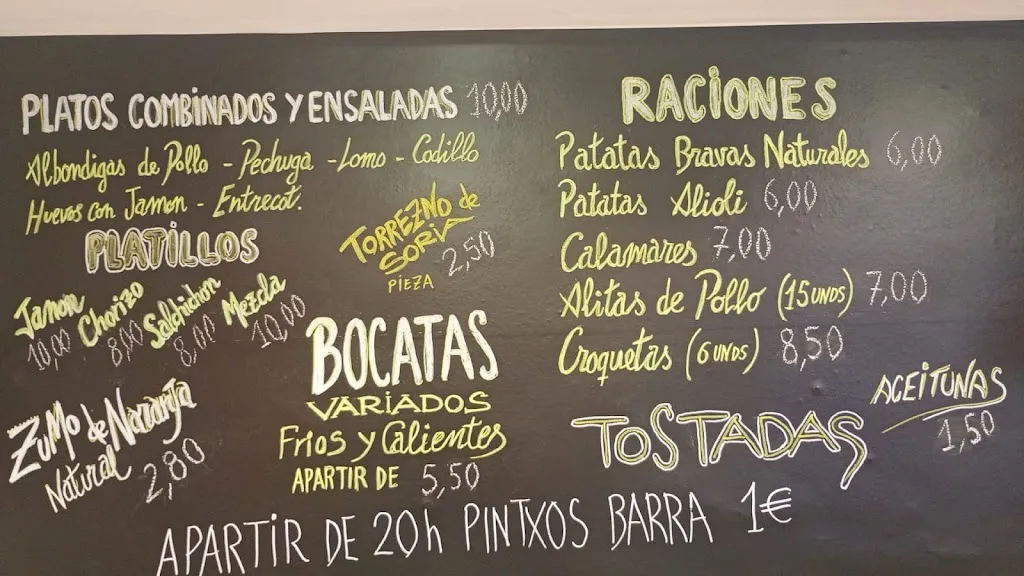 PLATOS COMBINADOS Y ENSALADAS 10,00
Albondigas de Pollo - Pechuga - Lomo - Codillo
Huevos con Jamon - Entrecot.
TORREZNO de
SORIA
PIEZA
2,50
PLATILLOS
Jamon 10,00
Chorizo 8,00
Salchichon 8,00
Mezcla 10,00
ZUMO de Naranja
Natural 2,80
BOCATAS
VARIADOS
FRIOS y Calientes
APARTIR DE 5,50
RACIONES
Patatas Bravas Naturales 6,00
Patatas Alioli 6,00
Calamares 7,00
Alitas de Pollo (15 UNDS) 7,00
Croquetas (6 UNDS) 8,50
ACEITUNAS
1,50
TOSTADAS
APARTIR DE 20h PINTXOS BARRA 1€